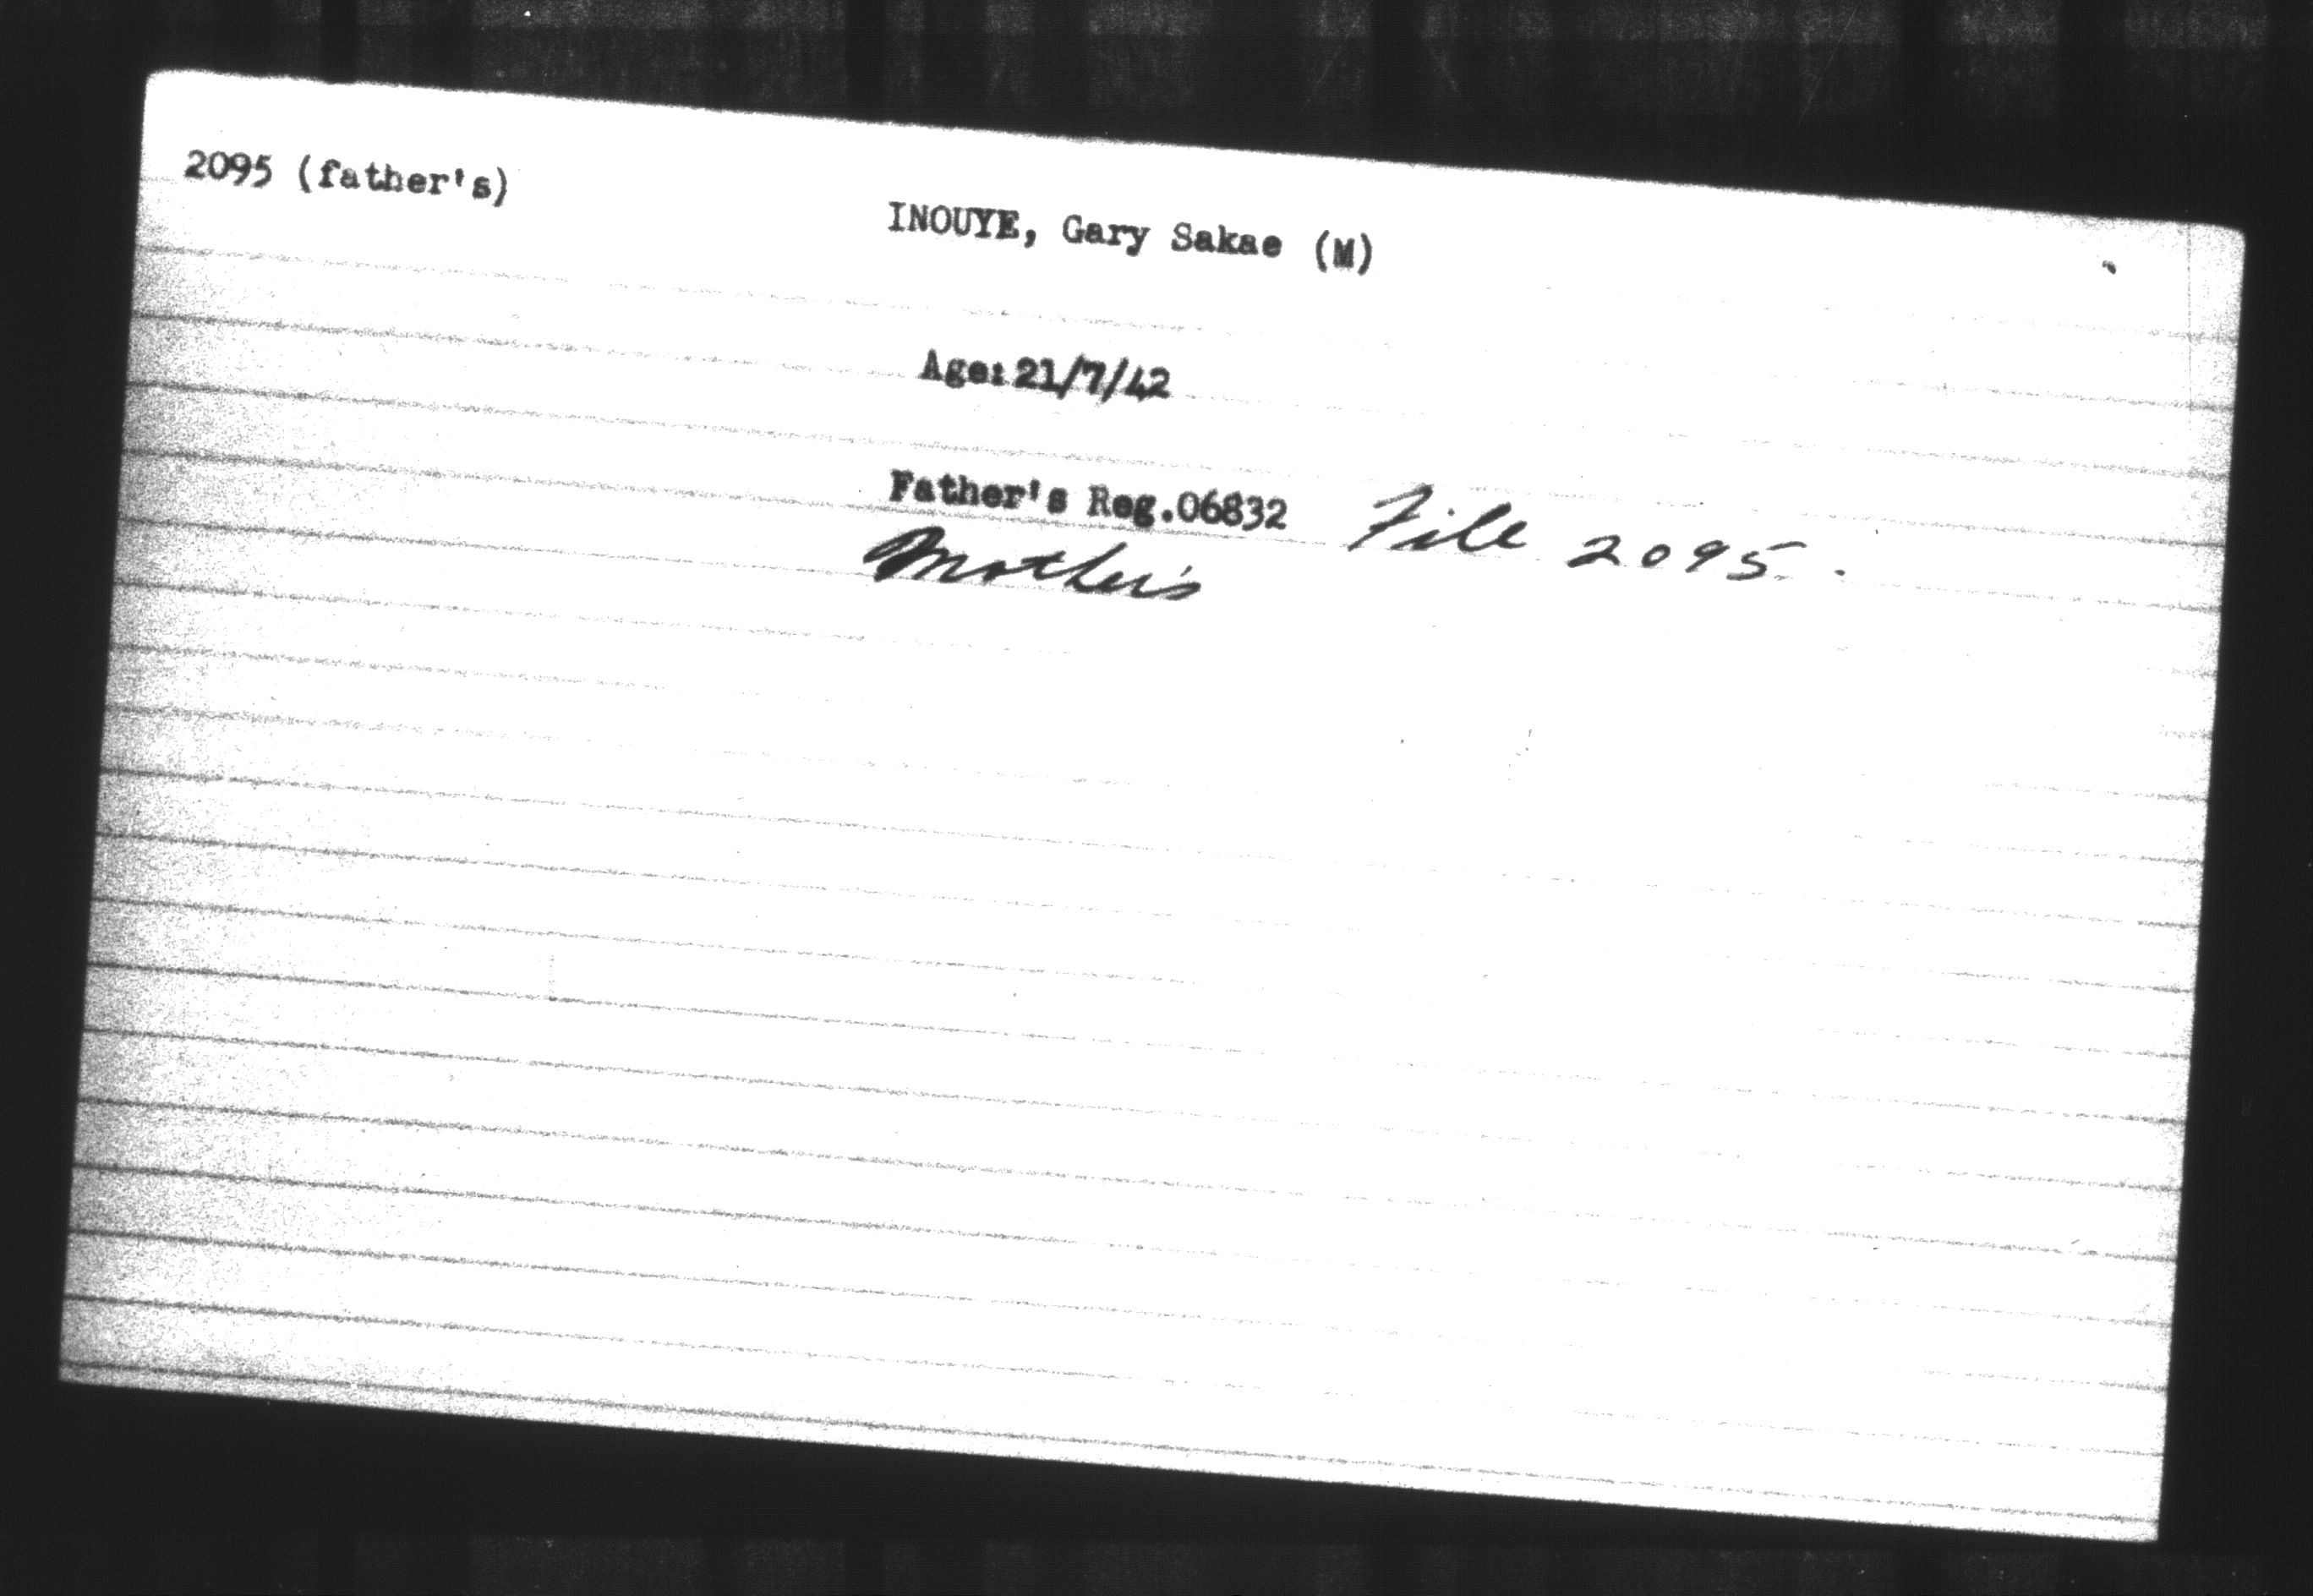 2095 (father's)
INOUYE, Gary Sakae (M)
Age: 21/7/42
Father's Reg. 06832 File 2095.
Mother's